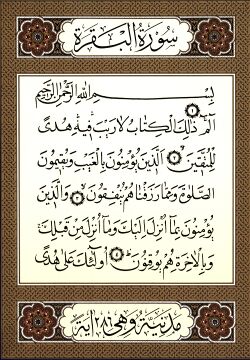 سورة البقرة
بسم الله الرحمن الرحيم
الم ١ ذلك الكتاب لا ريب فيه هدى
للمتقين ٢ الذين يؤمنون بالغيب ويقيمون
الصلوة ومما رزقناهم ينفقون ٣ والذين
يؤمنون بما انزل اليك وما انزل من قبلك
وبالاخرة هم يوقنون ٤ اولئك على هدى
مدنية وهي ٢٨٦ اية